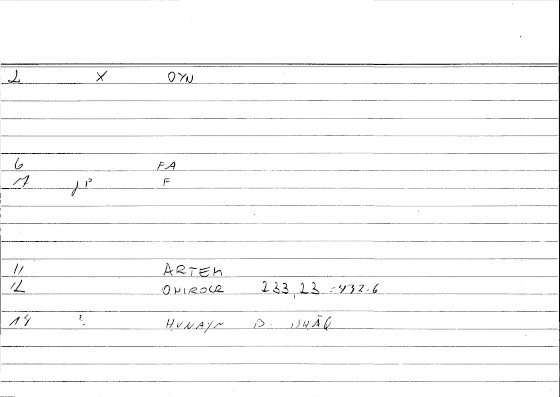 1 X OYN
6 FA
7 JP F
11 ARTEM
12 ONIROCR 233,23 - 432.6
14 ? HUNAYN B. ISHĀQ